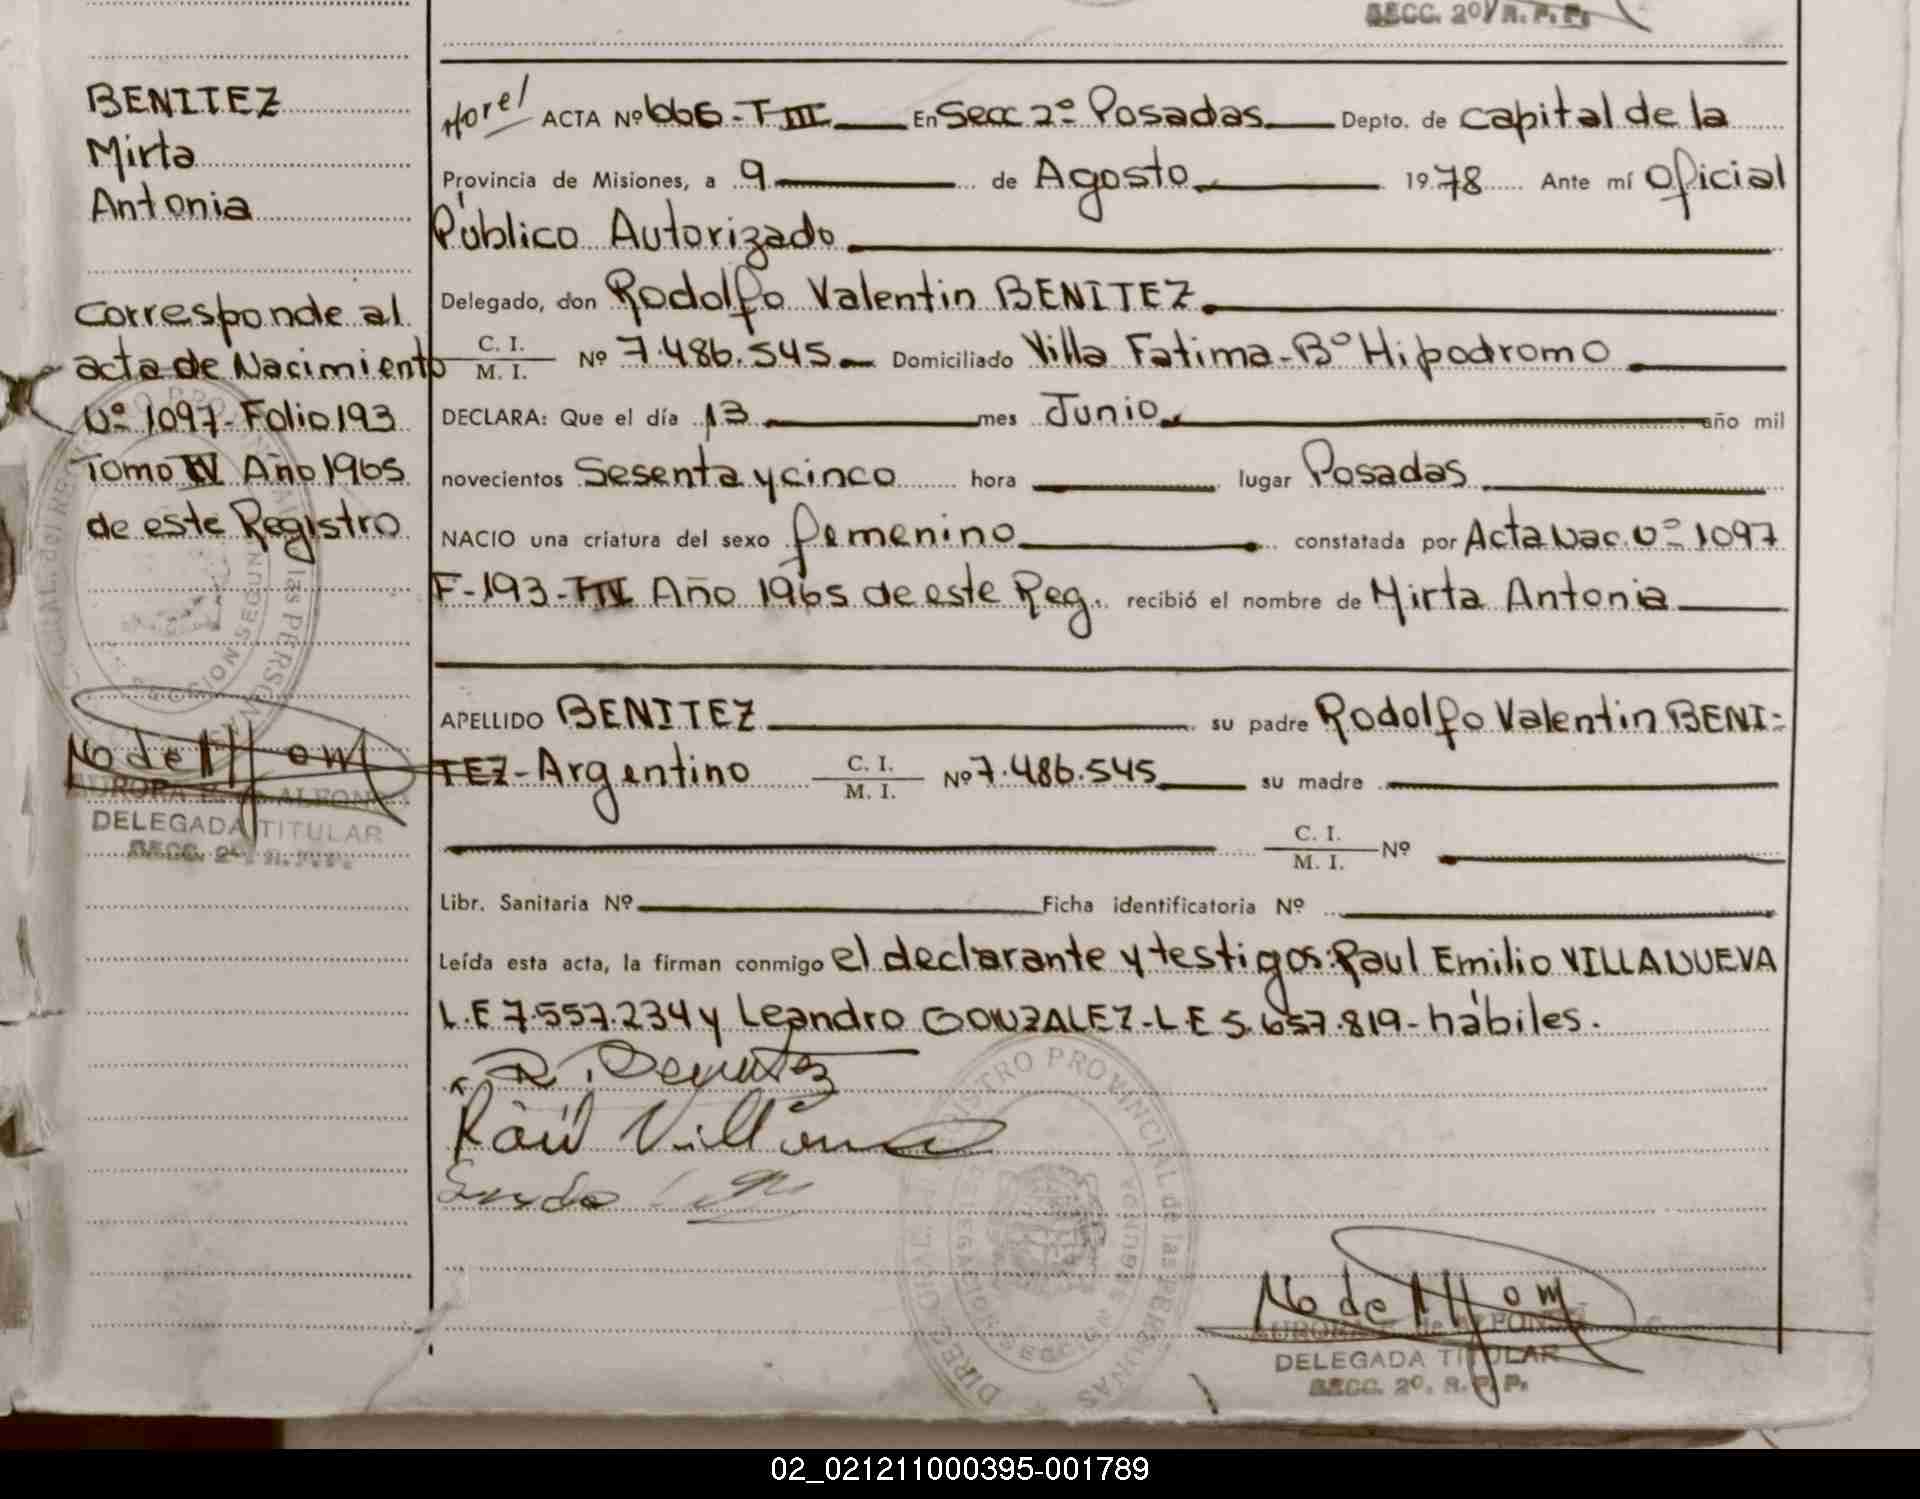 SECC. 2º R. P. P.
BENITEZ
Mirta
Antonia
Corresponde al
acta de Nacimiento
Nº 1097-Folio 193
Tomo IV Año 1965
de este Registro
SECCION SEGUN
DELEGADA TITULAR
SECC. 2º. R. P. P.
ACTA Nº 666-T III En Secc 2º Posadas Depto. de Capital de la
Provincia de Misiones, a 9 de Agosto 1978 Ante mí Oficial
Público Autorizado
Delegado, don Rodolfo Valentin BENITEZ
C. I.
M. I. Nº 7.486.545 Domiciliado Villa Fatima-Bº Hipodromo
DECLARA: Que el día 13 mes Junio año mil
novecientos Sesenta y cinco hora lugar Posadas
NACIO una criatura del sexo femenino constatada por Acta Nac. Nº 1097
F-193-T IV Año 1965 de este Reg. recibió el nombre de Mirta Antonia
APELLIDO BENITEZ su padre Rodolfo Valentin BENI-
TEZ-Argentino C. I. M. I. Nº 7.486.545 su madre
C. I. M. I. Nº
Libr. Sanitaria Nº Ficha identificatoria Nº
Leída esta acta, la firman conmigo el declarante y testigos: Raul Emilio VILLANUEVA
L.E 7.557.234 y Leandro GONZALEZ-L E 5.657.819-hábiles.
R. Benitez
Raúl
DELEGADA TITULAR
SECC. 2º. R. P. P.
02_021211000395-001789